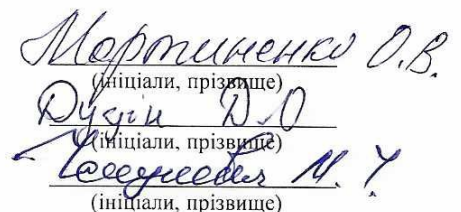 Мартиненко О.В.
(ініціали, прізвище)
Дудін Д.О
(ініціали, прізвище)
М. Ч.
(ініціали, прізвище)